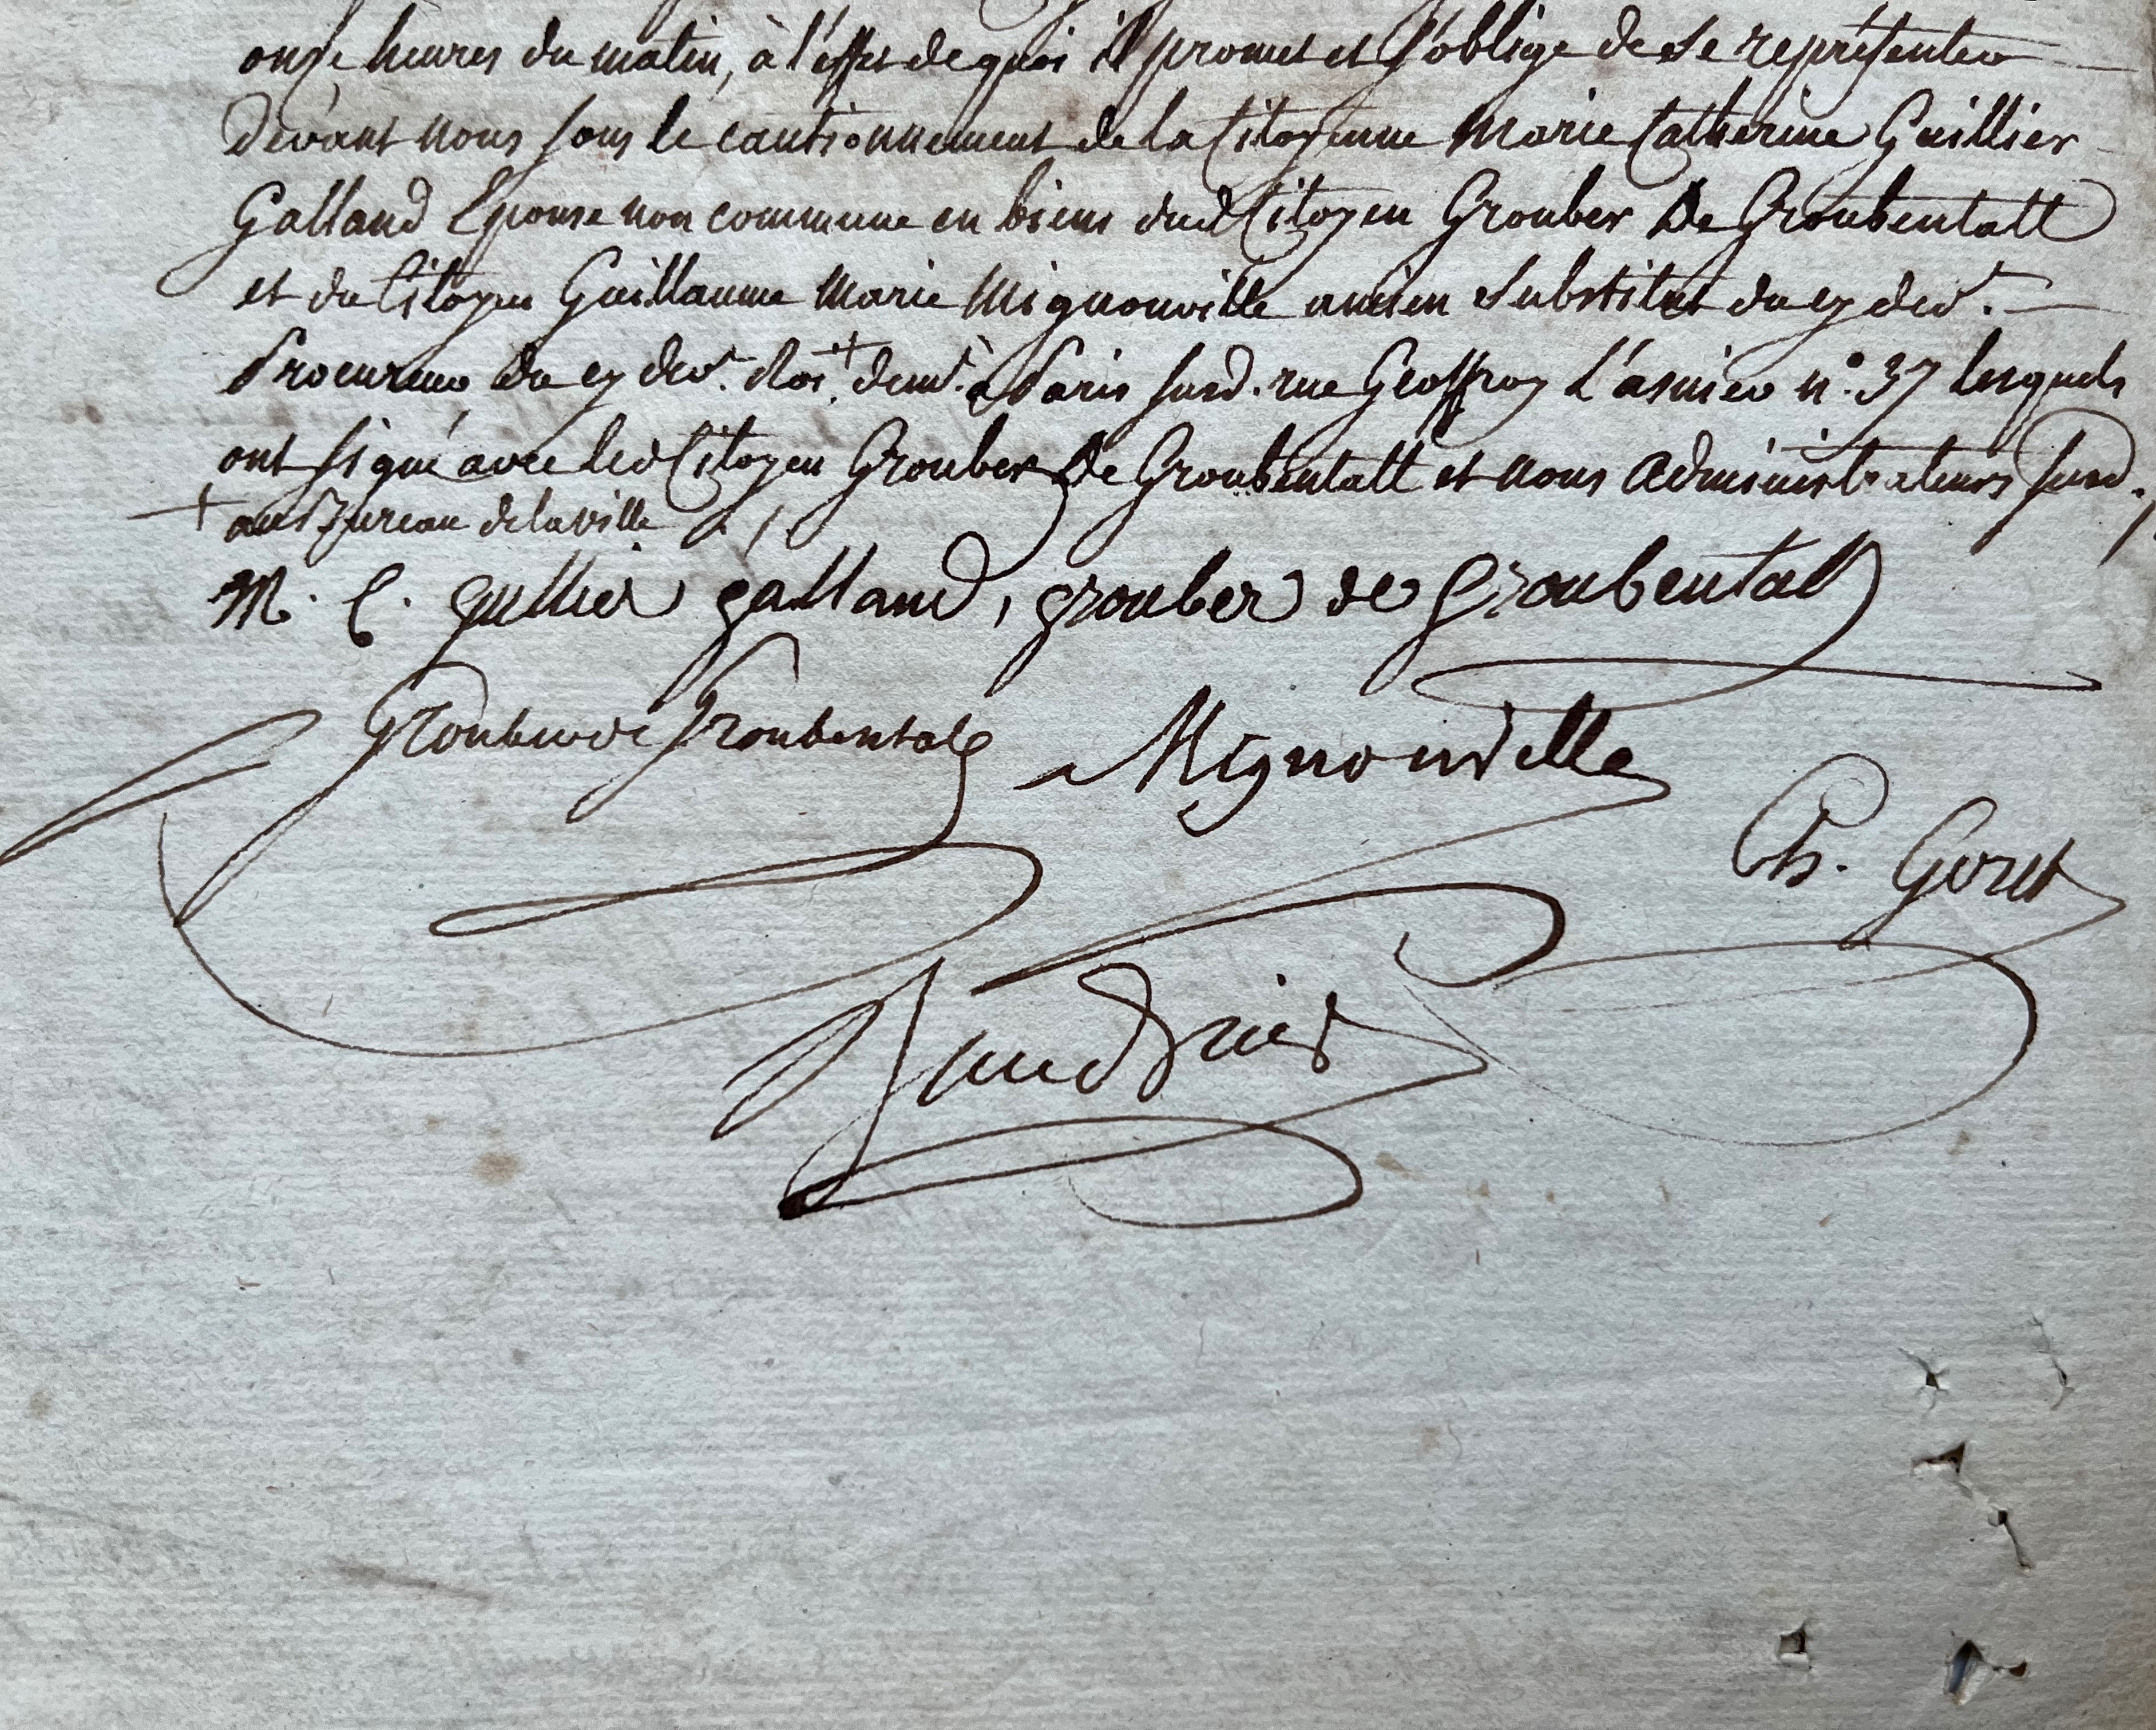 onze heures du matin, à l'effet de quoi il promet et s'oblige de se représenter
devant nous sous le cautionnement de la Citoyenne Marie Catherine Guillier
Galland Epouse non commune en biens dud Citoyen Grouber De Groubentall
et du Citoyen Guillaume Marie Mignonville ancien Substitut du cy dev.t
Procureur du cy dev.t Roi + demt. à Paris susd. rue Geoffroy L'asnier n.o 37 lesquels
ont signé avec led Citoyen Grouber De Groubentall et nous Administrateurs susd.
+ au Bureau de la ville
M. C. gullier galland, grouber de groubentall
Grouber de Groubentall
Mignonville
Ch. Goret